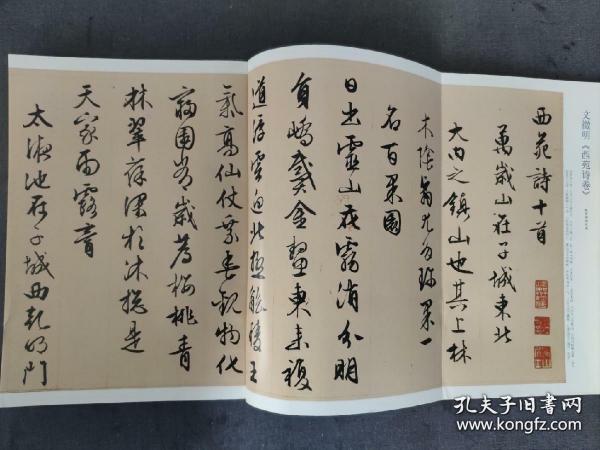 文徵明《西苑诗卷》
西苑詩十首
萬歲山在子城東北
大内之鎮山也其上林
木陰翳尤多珍果一
名百果園
日出靈山花霧消分明
員嶠戴金鼇東来複
道浮雲迥北極觚稜王
氣高仙仗乘春觀物化
寢園常歲薦櫻桃青
林翠葆深於沐總是
天家雨露膏
太液池在子城西乾明門
孔夫子旧书网
www.kongfz.com